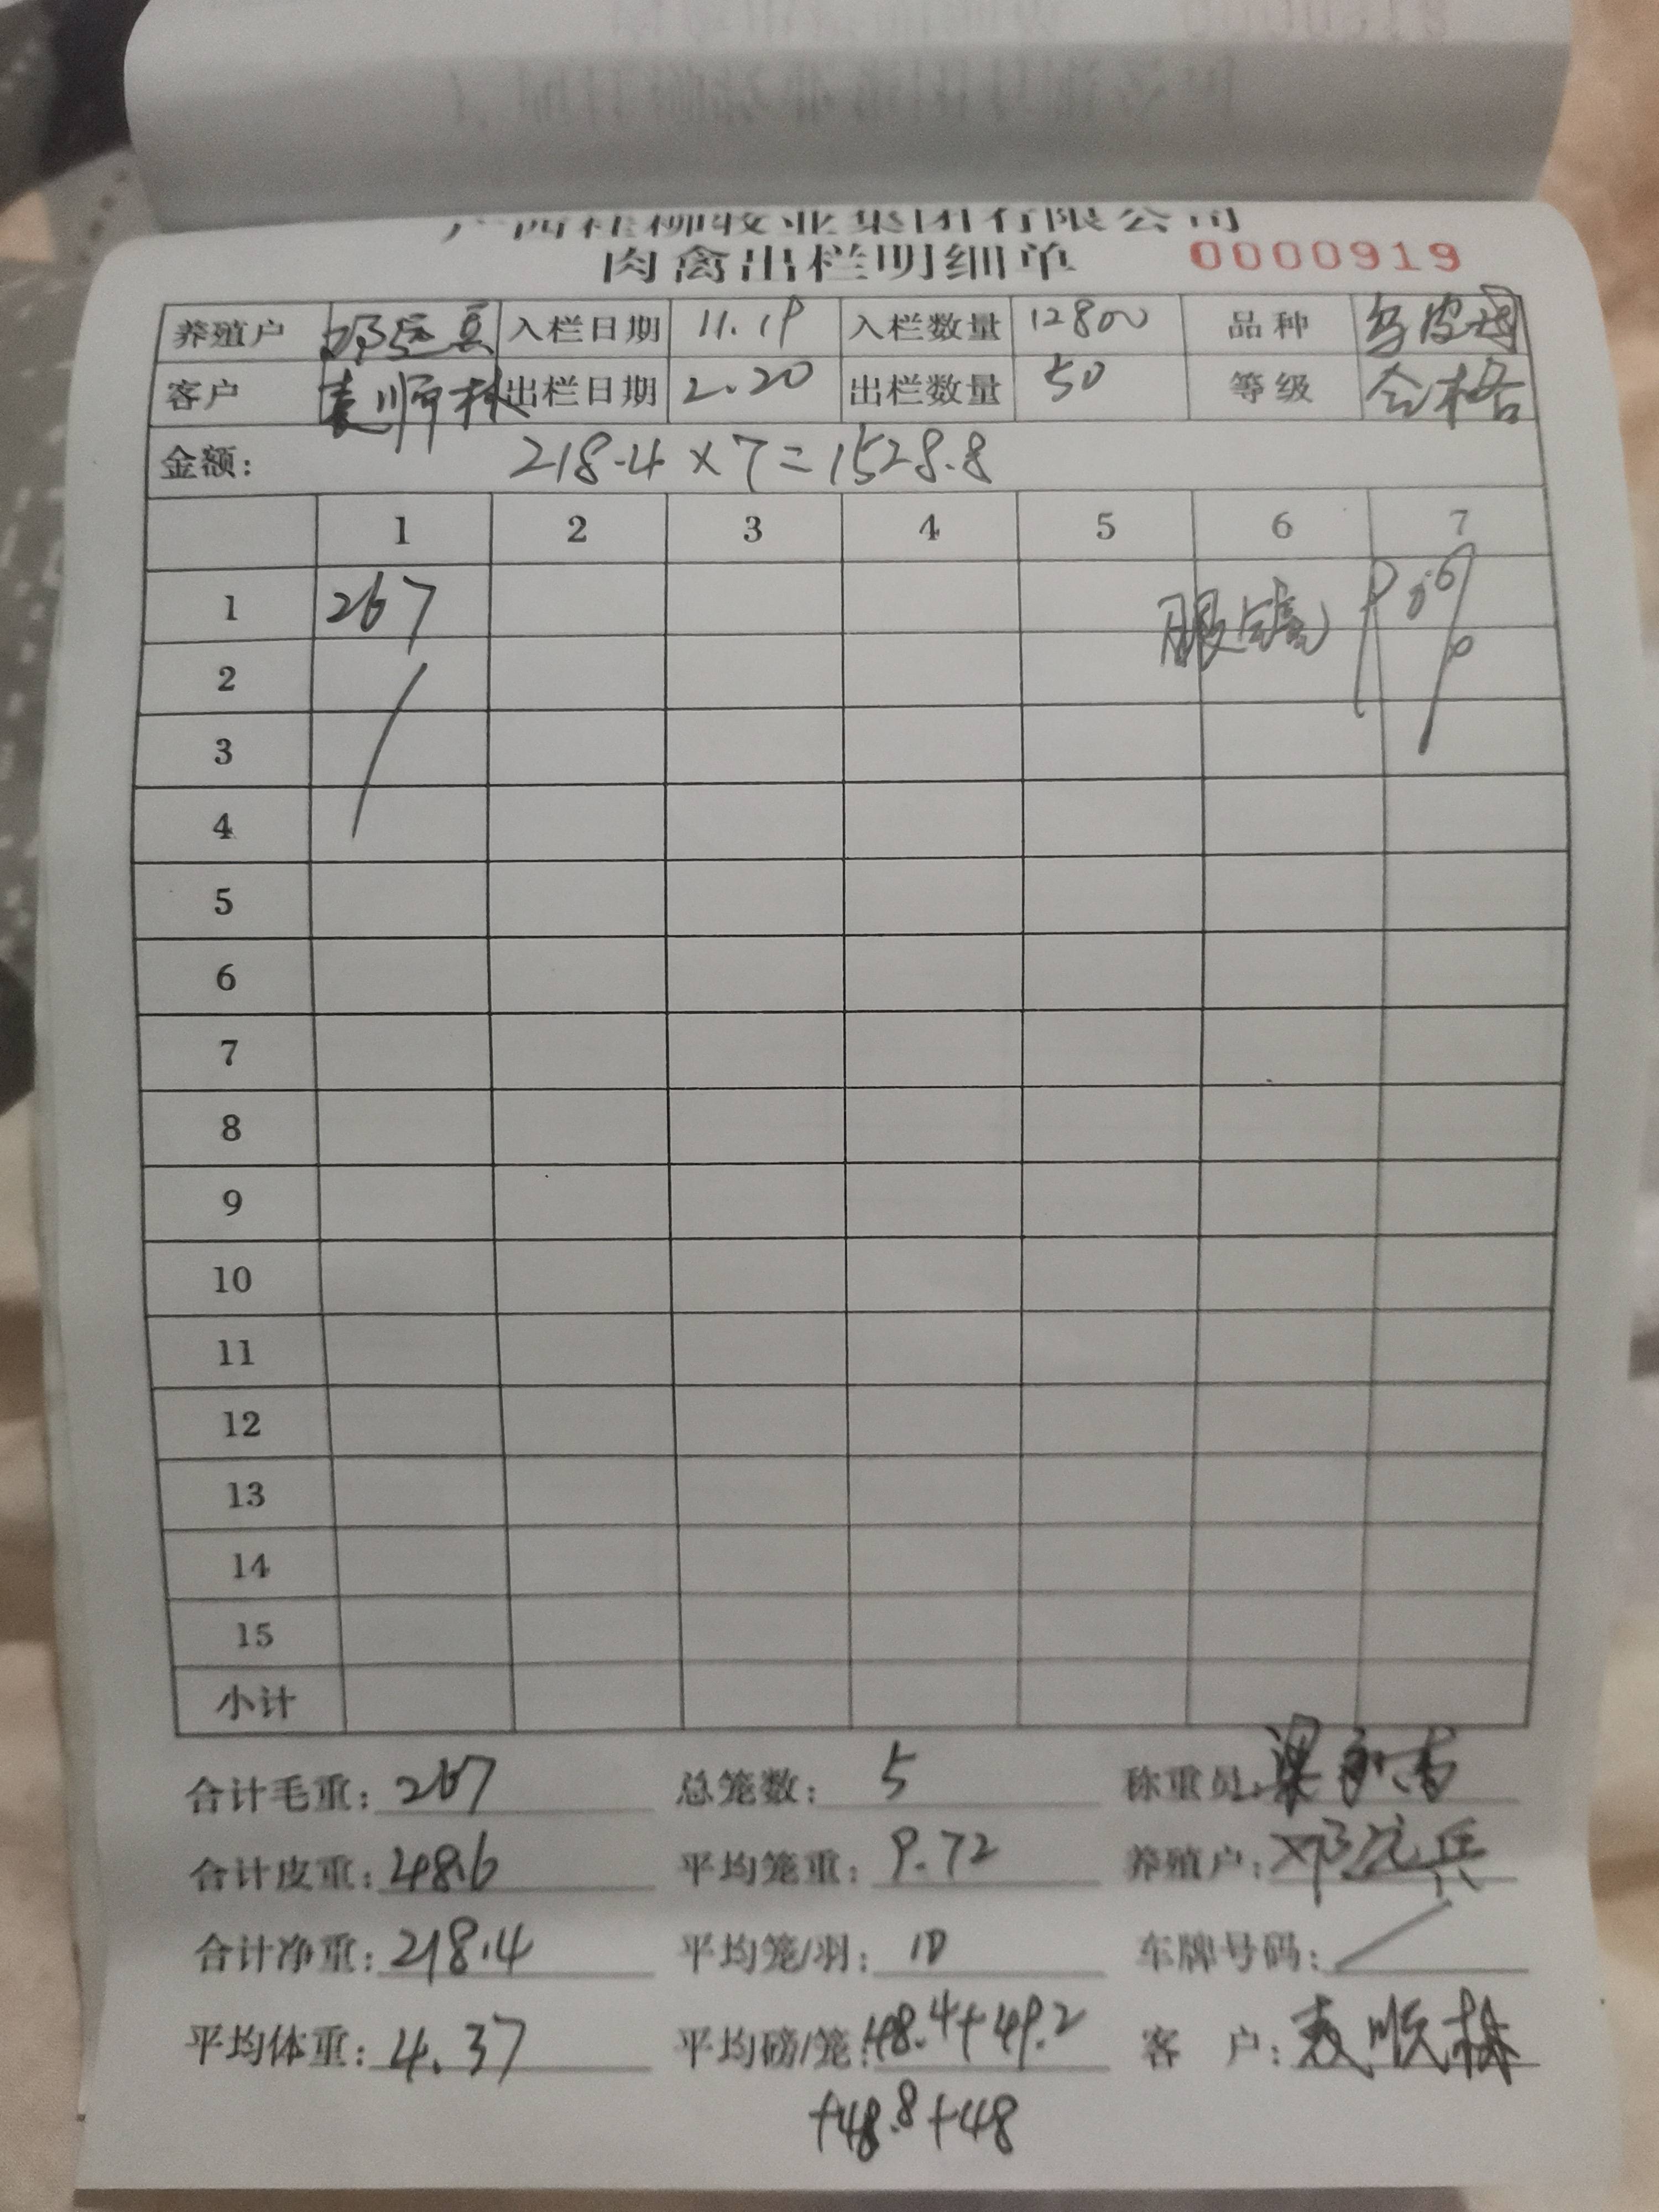 广西桂柳牧业集团有限公司
肉禽出栏明细单 0000919
养殖户 入栏日期 11.19 入栏数量 12800 品种
客户 出栏日期 2.20 出栏数量 50 等级 合格
金额: 218.4×7=1528.8
1 2 3 4 5 6 7
1 267
2
3
4
5
6
7
8
9
10
11
12
13
14
15
小计
合计毛重: 267 总笼数: 5 称重员:
合计皮重: 48.6 平均笼重: 9.72 养殖户: 邓
合计净重: 218.4 平均笼/羽: 10 车牌号码:
平均体重: 4.37 平均磅/笼: 48.4+49.2 客 户: 顺林
+48.8+48